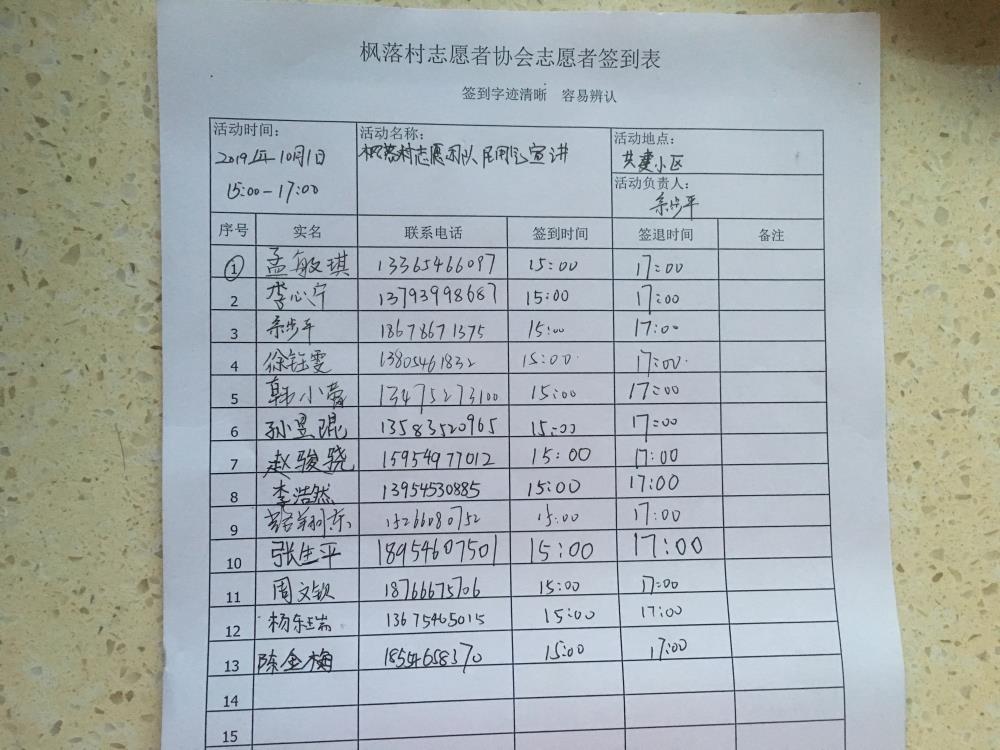 枫落村志愿者协会志愿者签到表
签到字迹清晰 容易辨认
活动时间： 活动名称： 活动地点：
2019年10月1日 枫落村志愿团队 宣讲 共建小区
15:00-17:00 活动负责人：
序号 实名 联系电话 签到时间 签退时间 备注
1 孟敏琪 13365466097 15:00 17:00
2 李心宁 13793998687 15:00 17:00
3 18678671375 15:00 17:00
4 徐钰雯 13805461832 15:00 17:00
5 韩小蕾 13475273100 15:00 17:00
6 孙昱琨 13583520965 15:00 17:00
7 赵骏骁 15954977012 15:00 17:00
8 李浩然 13954530885 15:00 17:00
9 15266080752 15:00 17:00
10 张生平 18954607501 15:00 17:00
11 周文钦 18766675706 15:00 17:00
12 杨东瑞 13675465015 15:00 17:00
13 陈金梅 18554658370 15:00 17:00
14
15